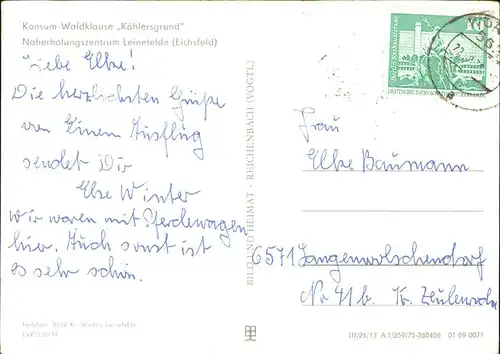 Konsum-Waldklause „Köhlersgrund"
Naherholungszentrum Leinefelde (Eichsfeld)
Liebe Elke!
Die herzlichsten Grüße
von einem Ausflug
sendet Dir
Else Winter
Wir waren mit Pferdewagen
hier. Auch sonst ist
es sehr schön.
BILD UND HEIMAT · REICHENBACH (VOGTL)
10
DEUTSCHE DEMOKR
Frau
Elke Baumann
6571 Langenwolschendorf
Nr. 41b. Kr. Zeulenroda
EVP 0,20 M
III/26/13 A 1/259/75-280456 01 09 0071